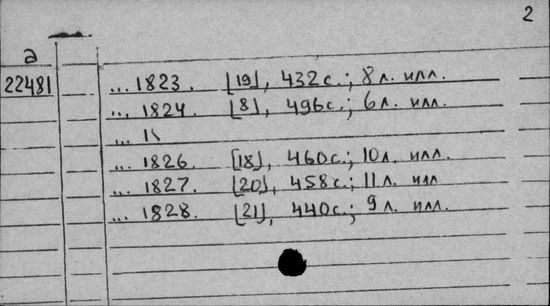 2
а
22481
... 1823. [19], 432 с.; 8 л. илл.
... 1824. [8], 496 с.; 6 л. илл.
...
... 1826. [18], 460 с.; 10 л. илл.
... 1827. [20], 458 с.; 11 л. илл
... 1828. [21], 440 с.; 9 л. илл.